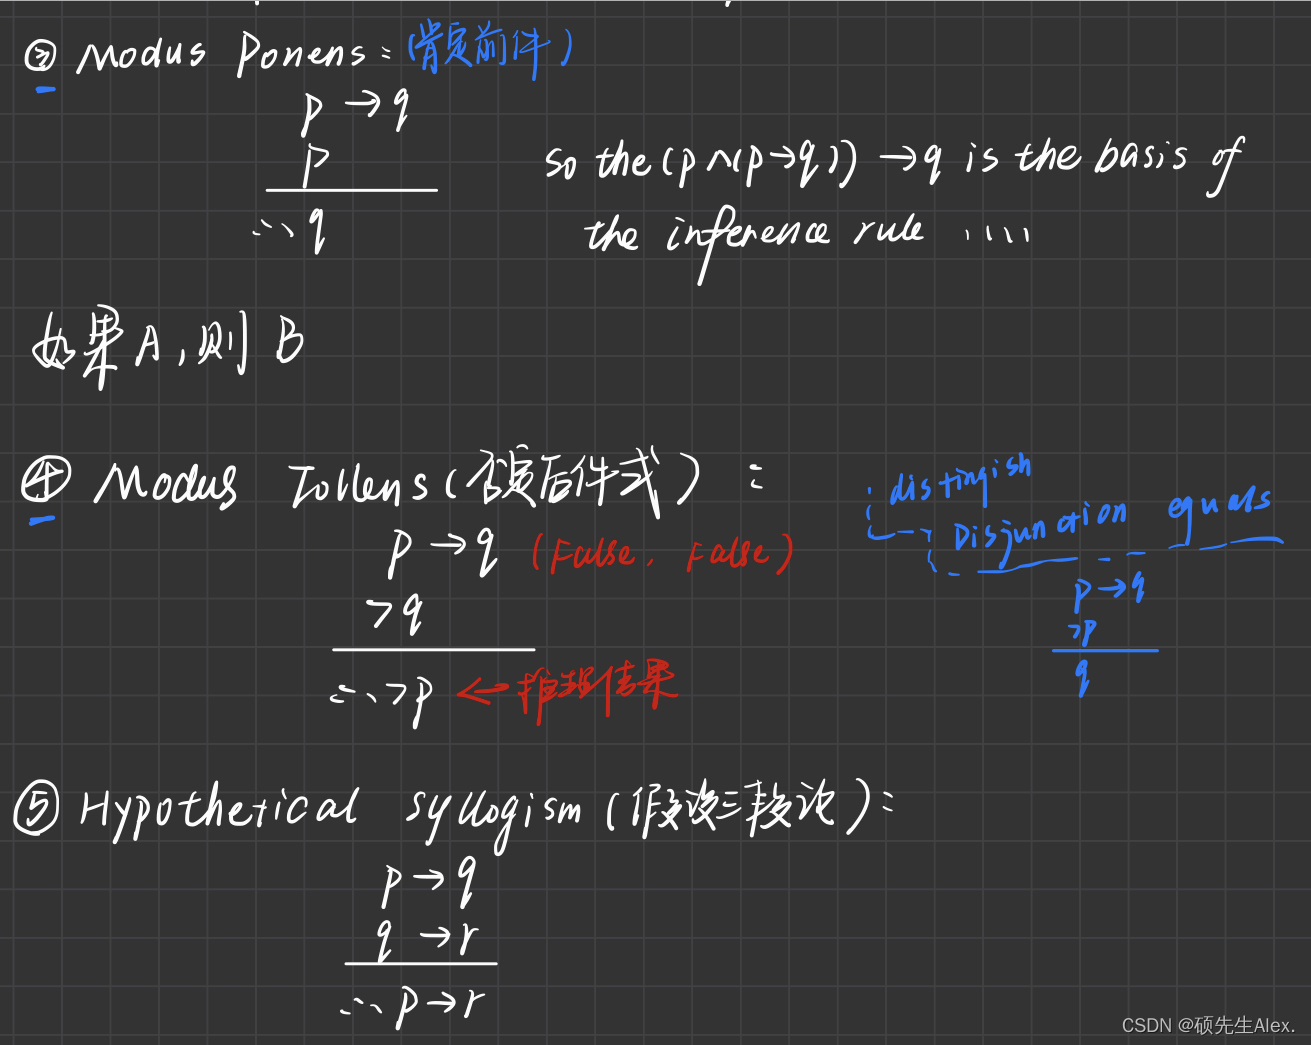 ③ Modus Ponens: (肯定前件)
p → q
p
∴ q
So the (p ∧ (p → q)) → q is the basis of
the inference rule ....
如果 A, 则 B
④ Modus Tollens (否定后件式) :
p → q (False, False)
¬q
∴ ¬p ← 推理结果
distingish
Disjunction equals
p → q
¬p
q
⑤ Hypothetical syllogism (假设三段论) :
p → q
q → r
∴ p → r
CSDN @硕先生Alex.